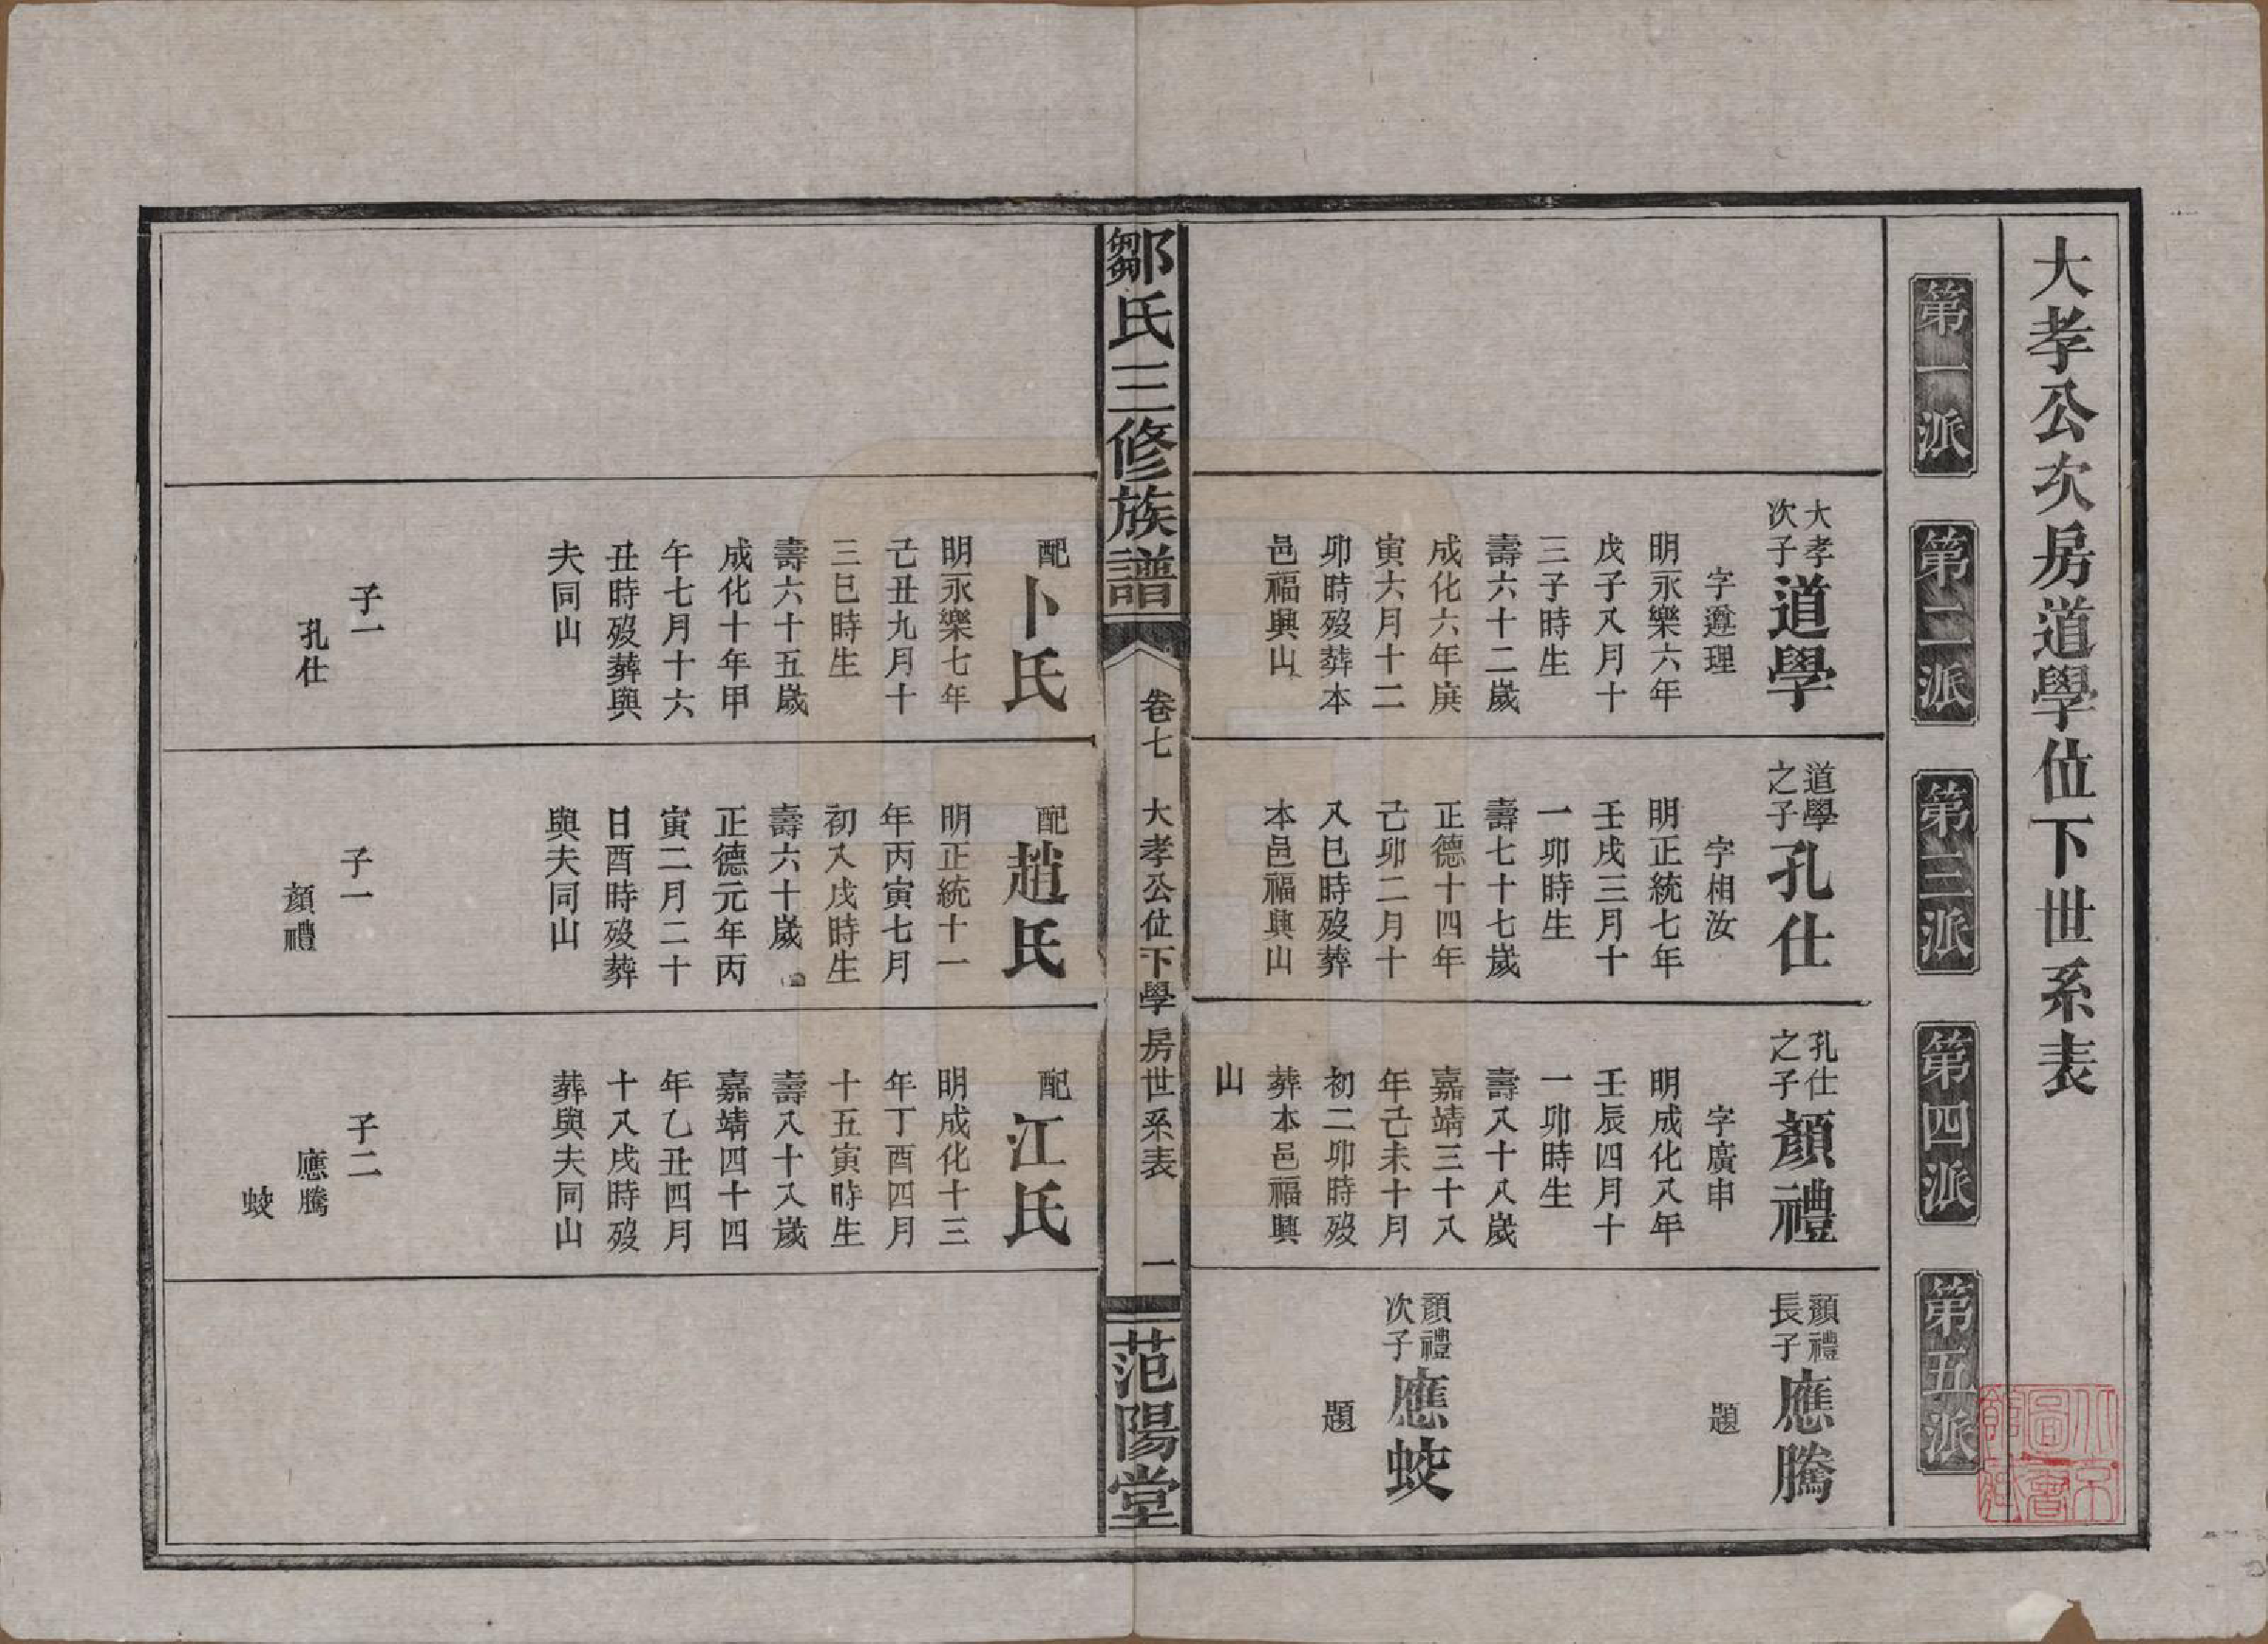 大孝公次房道學位下世系表
第一派
第二派
第三派
第四派
第五派
大孝
次子
道學
字遵理
明永樂六年
戊子八月十
三子時生
壽六十二歲
成化六年庚
寅六月十二
卯時歿葬本
邑福興山
道學
之子
孔仕
字相汝
明正統七年
壬戌三月十
一卯時生
壽七十七歲
正德十四年
己卯二月十
八巳時歿葬
本邑福興山
孔仕
之子
顏禮
字廣申
明成化八年
壬辰四月十
一卯時生
壽八十八歲
嘉靖三十八
年己未十月
初二卯時歿
葬本邑福興
山
顏禮
長子
應騰
題
顏禮
次子
應蛟
題
鄒氏三修族譜
卷七
大孝公位下學房世系表
一
范陽堂
配
卜氏
明永樂七年
己丑九月十
三巳時生
壽六十五歲
成化十年甲
午七月十六
丑時歿葬與
夫同山
子一
孔仕
配
趙氏
明正統十一
年丙寅七月
初八戌時生
壽六十歲
正德元年丙
寅二月二十
日酉時歿葬
與夫同山
子一
顏禮
配
江氏
明成化十三
年丁酉四月
十五寅時生
壽八十八歲
嘉靖四十四
年乙丑四月
十八戌時歿
葬與夫同山
子二
應騰
蛟
北京
圖書
館藏